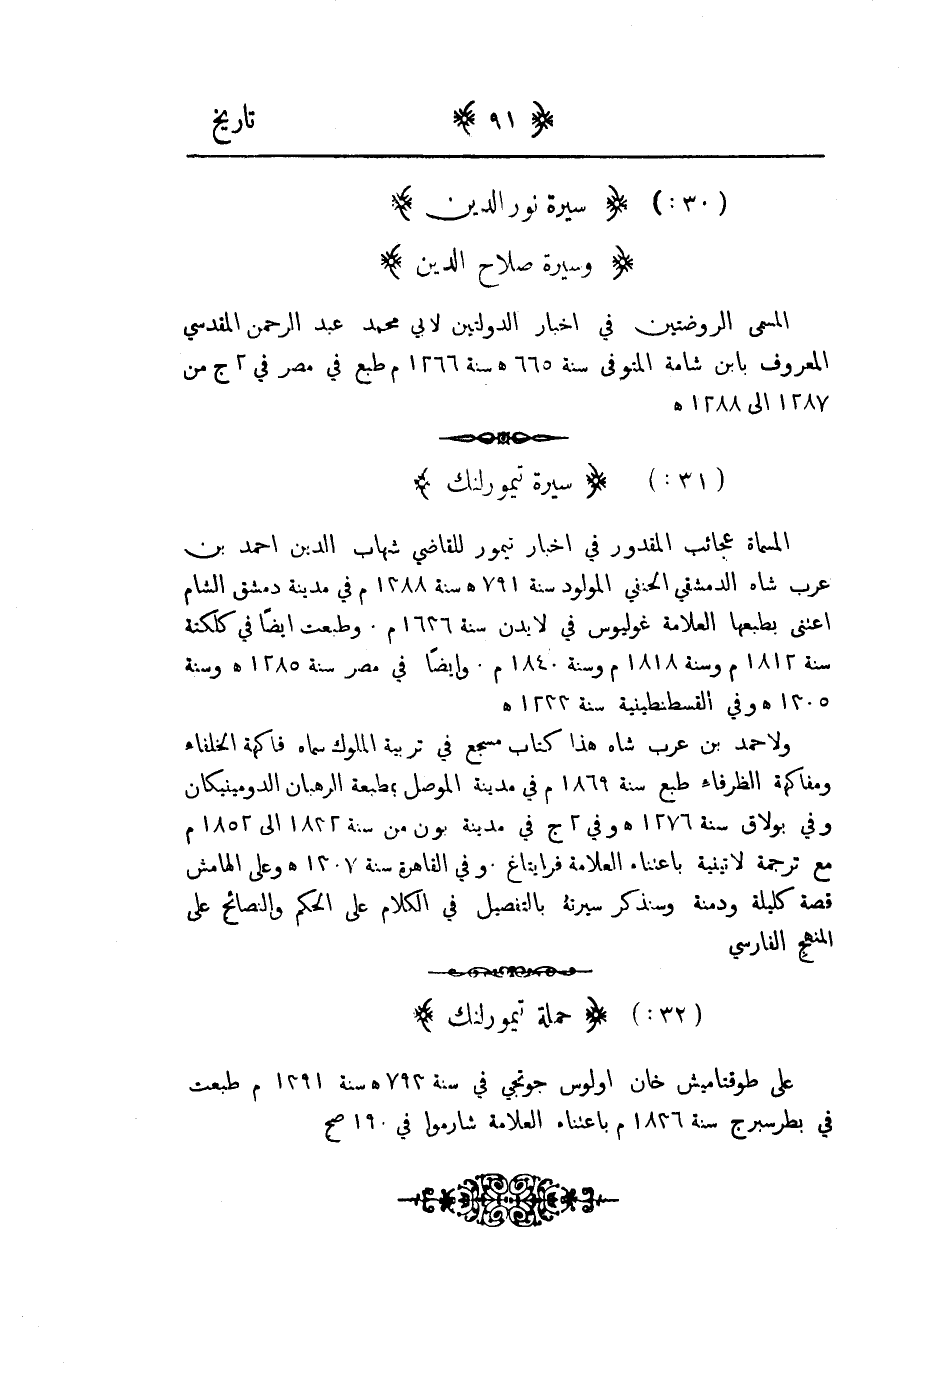 ﴿ ٩١ ﴾ تاريخ
(٣٠:) ﴿ سيرة نور الدين ﴾
﴿ وسيرة صلاح الدين ﴾
المسمى الروضتين في اخبار الدولتين لابي محمد عبد الرحمن المقدسي
المعروف بابن شامة المتوفى سنة ٦٦٥ ه سنة ١٢٦٦ م طبع في مصر في ٢ ج من
١٢٨٧ الى ١٢٨٨ ه
(٣١:) ﴿ سيرة تيمورلنك ﴾
المسماة عجائب المقدور في اخبار تيمور للقاضي شهاب الدين احمد بن
عرب شاه الدمشقي الحنفي المولود سنة ٧٩١ ه سنة ١٣٨٨ م في مدينة دمشق الشام
اعتنى بطبعها العلامة غوليوس في لايدن سنة ١٦٣٦ م · وطبعت ايضًا في كلكتة
سنة ١٨١٢ م وسنة ١٨١٨ م وسنة ١٨٤٠ م · وايضًا في مصر سنة ١٢٨٥ ه وسنة
١٣٠٥ ه وفي القسطنطينية سنة ه
ولاحمد بن عرب شاه هذا كتاب مسجع في تربية الملوك سماه فاكهة الخلفاء
ومفاكهة الظرفاء طبع سنة ١٨٦٩ م في مدينة الموصل بمطبعة الرهبان الدومينيكان
وفي بولاق سنة ١٢٧٦ ه وفي ٢ ج في مدينة بون من سنة ١٨٣٢ الى ١٨٥٢ م
مع ترجمة لاتينية باعتناء العلامة فرايتاغ · وفي القاهرة سنة ١٣٠٧ ه وعلى الهامش
قصة كليلة ودمنة وسنذكر سيرتهُ بالتفصيل في الكلام على الحكم والنصائح على
المنهج الفارسي
(٣٢:) ﴿ حملة تيمورلنك ﴾
على طوقتاميش خان اولوس جوتجي في سنة ٧٩٣ ه سنة ١٣٩١ م طبعت
في بطرسبرج سنة ١٨٣٦ م باعتناء العلامة شارموا في ١٩٠ صح